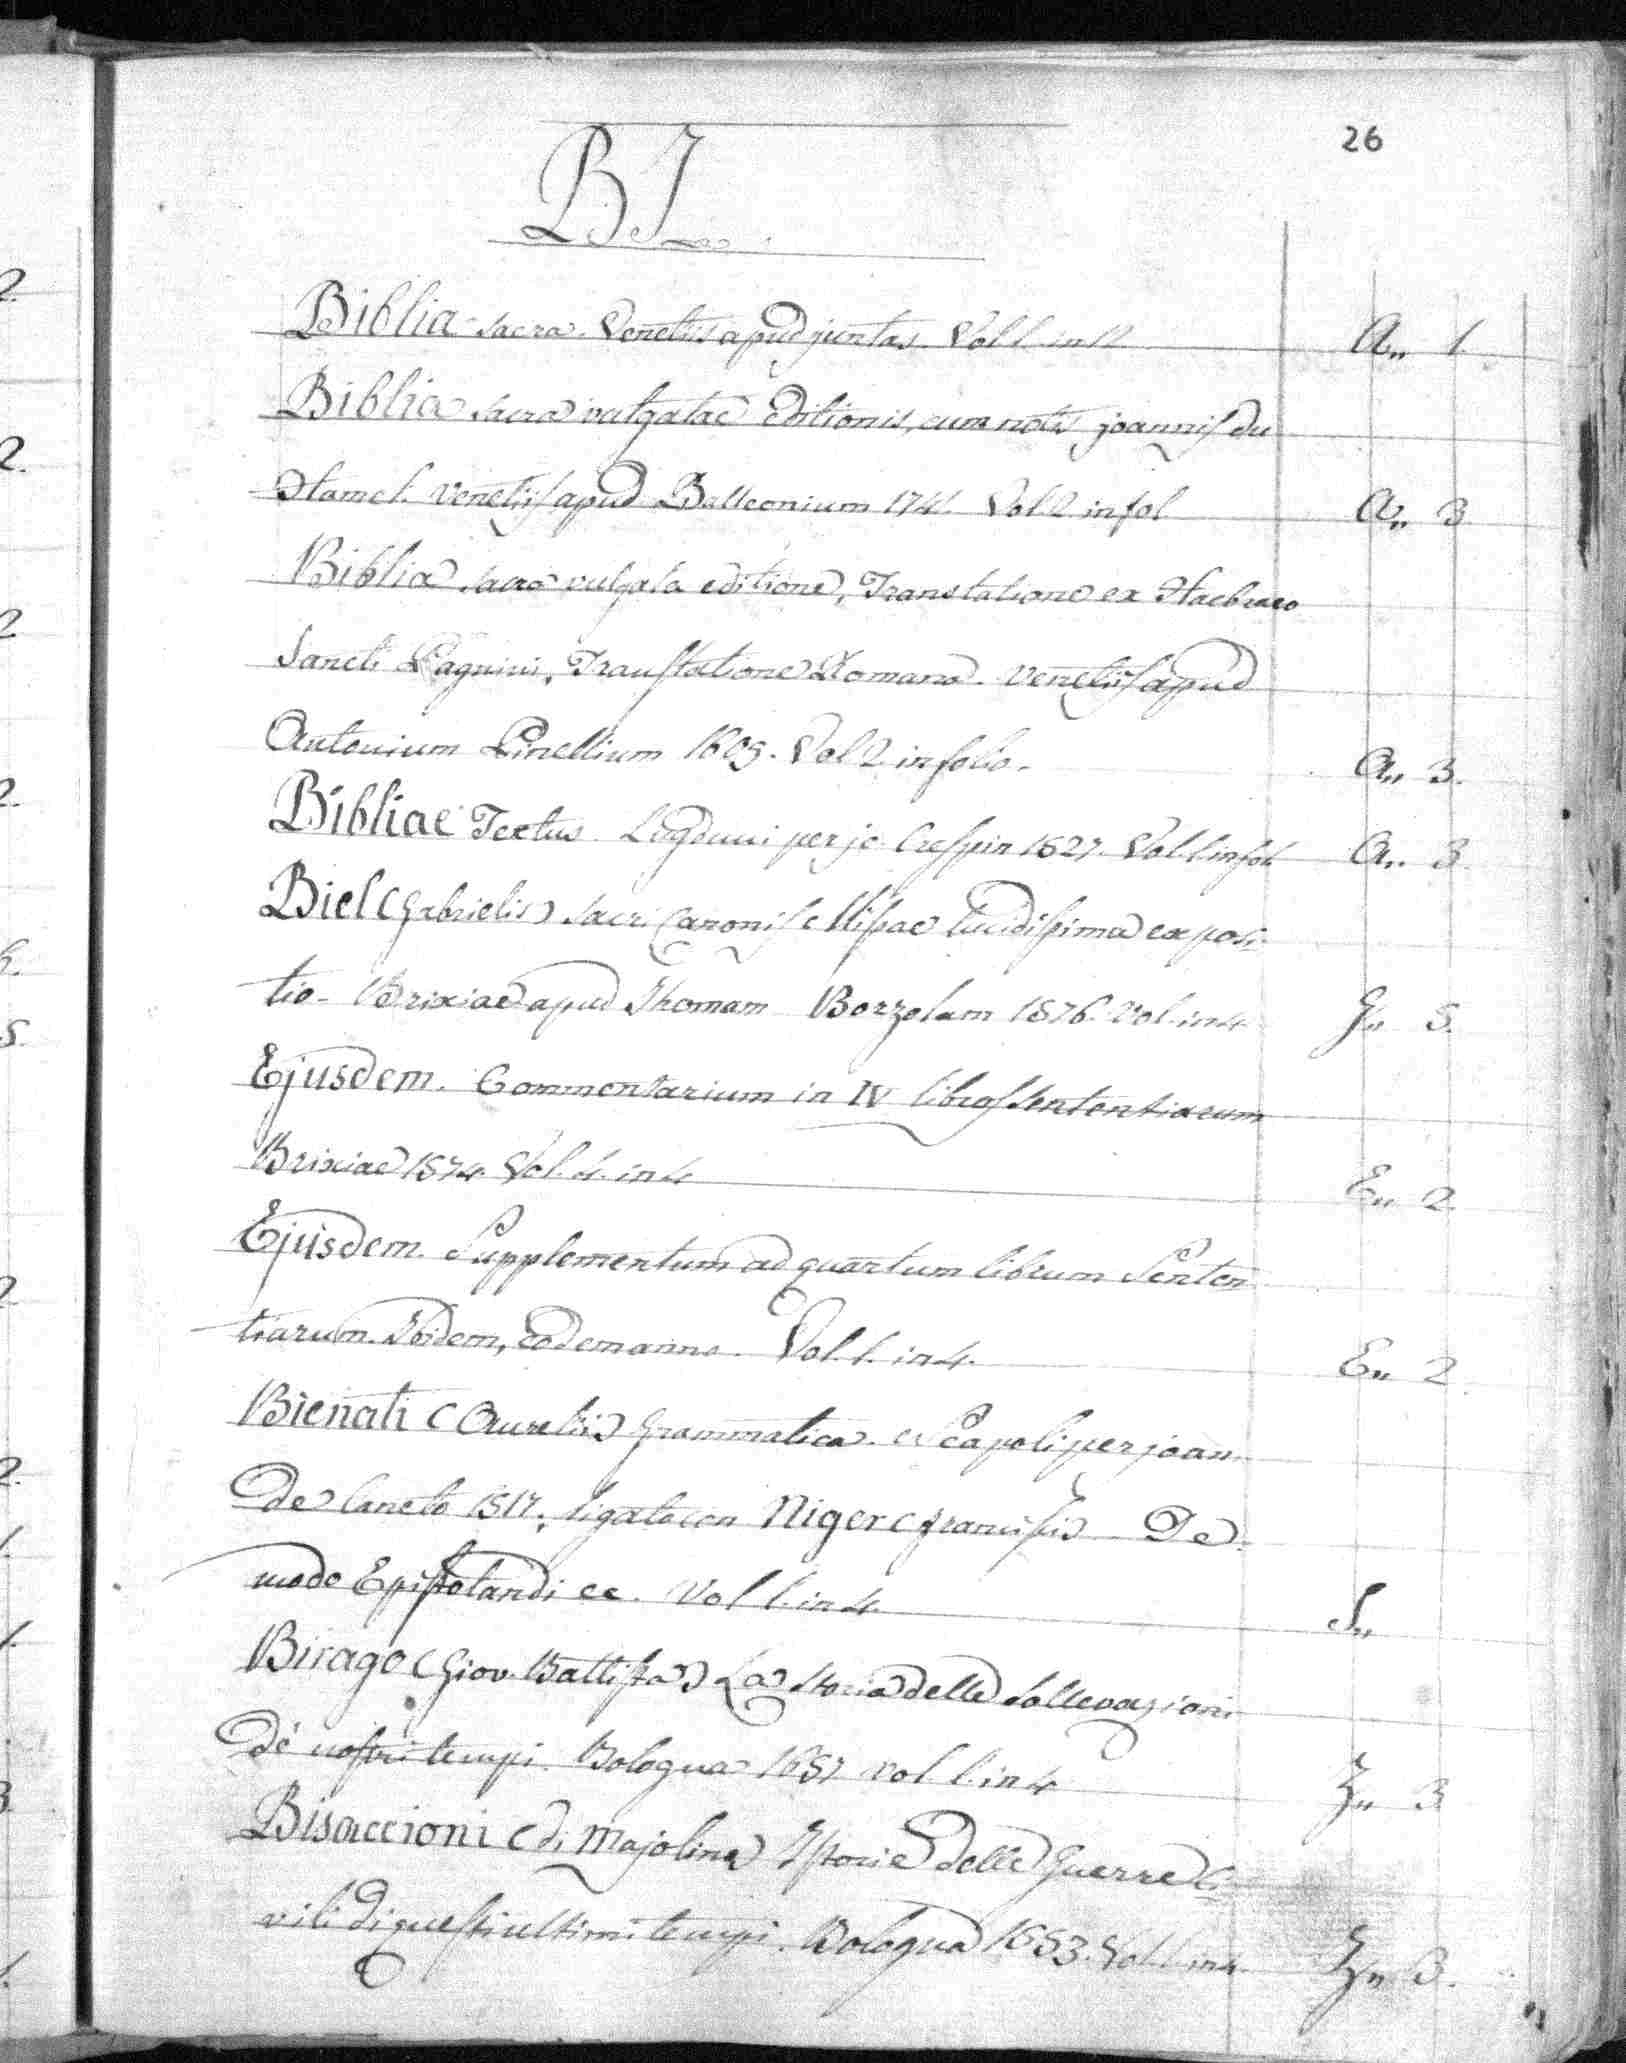 26
BI
Biblia sacra. Venetiis apud juntas. Vol 1. in 12 A,, 1.
Biblia sacra vulgatae Editionis, cum notis joannis du
Hamel. Venetiis apud Balleonium 1741. Vol 2 in fol A,, 3
Biblia sacra vulgata editione, Translatione ex Haebraeo
Sancti Pagnini, Translatione Romana. Venetiis apud
Antonium Pinellium 1609. Vol 2 in folio. A,, 3.
Bibliae Textus. Lugduni per jo: Crespin 1527. Vol. 1. in fol. A,, 3.
Biel (Gabrielis) sacri Canonis Missae lucidissima exposi-
tio. Brixiae apud Thomam Bozzolam 1576. Vol. in 4 G,, 5.
Ejusdem. Commentarium in IV libros sententiarum
Brixiae 1574. Vol. 4. in 4 E,, 2.
Ejusdem. Supplementum ad quartum librum Senten
tiarum. Ibidem, eodem anno. Vol. 1. in 4. E,, 2.
Bienati (Aurelii) Grammatica. Neapoli per joan.
de Caneto 1517. ligato con Niger (francisci) De
modo Epistolandi ec. Vol 1. in 4. S,,
Birago (Giov. Battista) La storia delle sollevazioni
de' nostri tempi. Bologna 1657 vol. 1. in 4 Z,, 3
Bisaccioni (di Majolino) Istorie delle Guerre Ci-
vili di questi ultimi tempi. Bologna 1653. Vol. 1. in 4. Z,, 3.